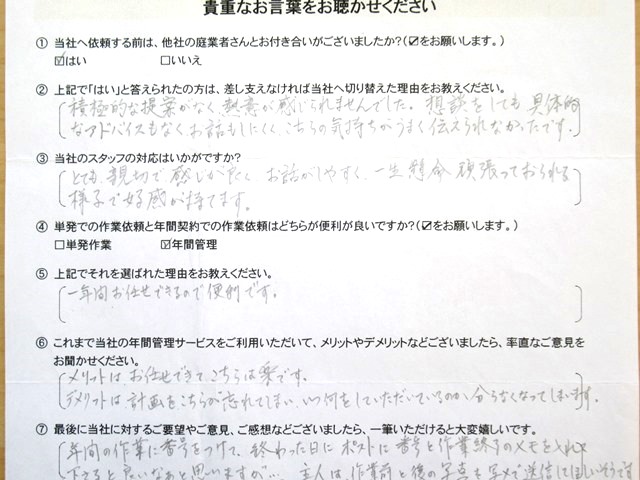 貴重なお言葉をお聴かせください
① 当社へ依頼する前は、他社の庭業者さんとお付き合いがございましたか?(☑をお願いします。)
☑はい □いいえ
② 上記で「はい」と答えられたの方は、差し支えなければ当社へ切り替えた理由をお教えください。
積極的な提案がなく、熱意が感じられませんでした。想談をしても具体的
なアドバイスもなくお話もしにくく、こちらの気持ちがうまく伝えられなかったです。
③ 当社のスタッフの対応はいかがですか?
とても親切で感じが良く、お話がしやすく、一生懸命頑張っておられる
様子で好感が持てます。
④ 単発での作業依頼と年間契約での作業依頼はどちらが便利が良いですか?(☑をお願いします。)
□単発作業 ☑年間管理
⑤ 上記でそれを選ばれた理由をお教えください。
一年間お任せできるので便利です。
⑥ これまで当社の年間管理サービスをご利用いただいて、メリットやデメリットなどございましたら、率直なご意見を
お聞かせください。
メリットはお任せできてこちらは楽です。
デメリットは計画をこちらが忘れてしまい、いつ何をしていただいているのか、分らなくなってしまいます。
⑦ 最後に当社に対するご要望やご意見、ご感想などございましたら、一筆いただけると大変嬉しいです。
年間の作業に番号をつけて、終わった日にポストに番号と作業終了のメモを入れて
下さると良いなぁと思いますが…、主人は、作業前と後の写真を写メで送信してほしいそうです